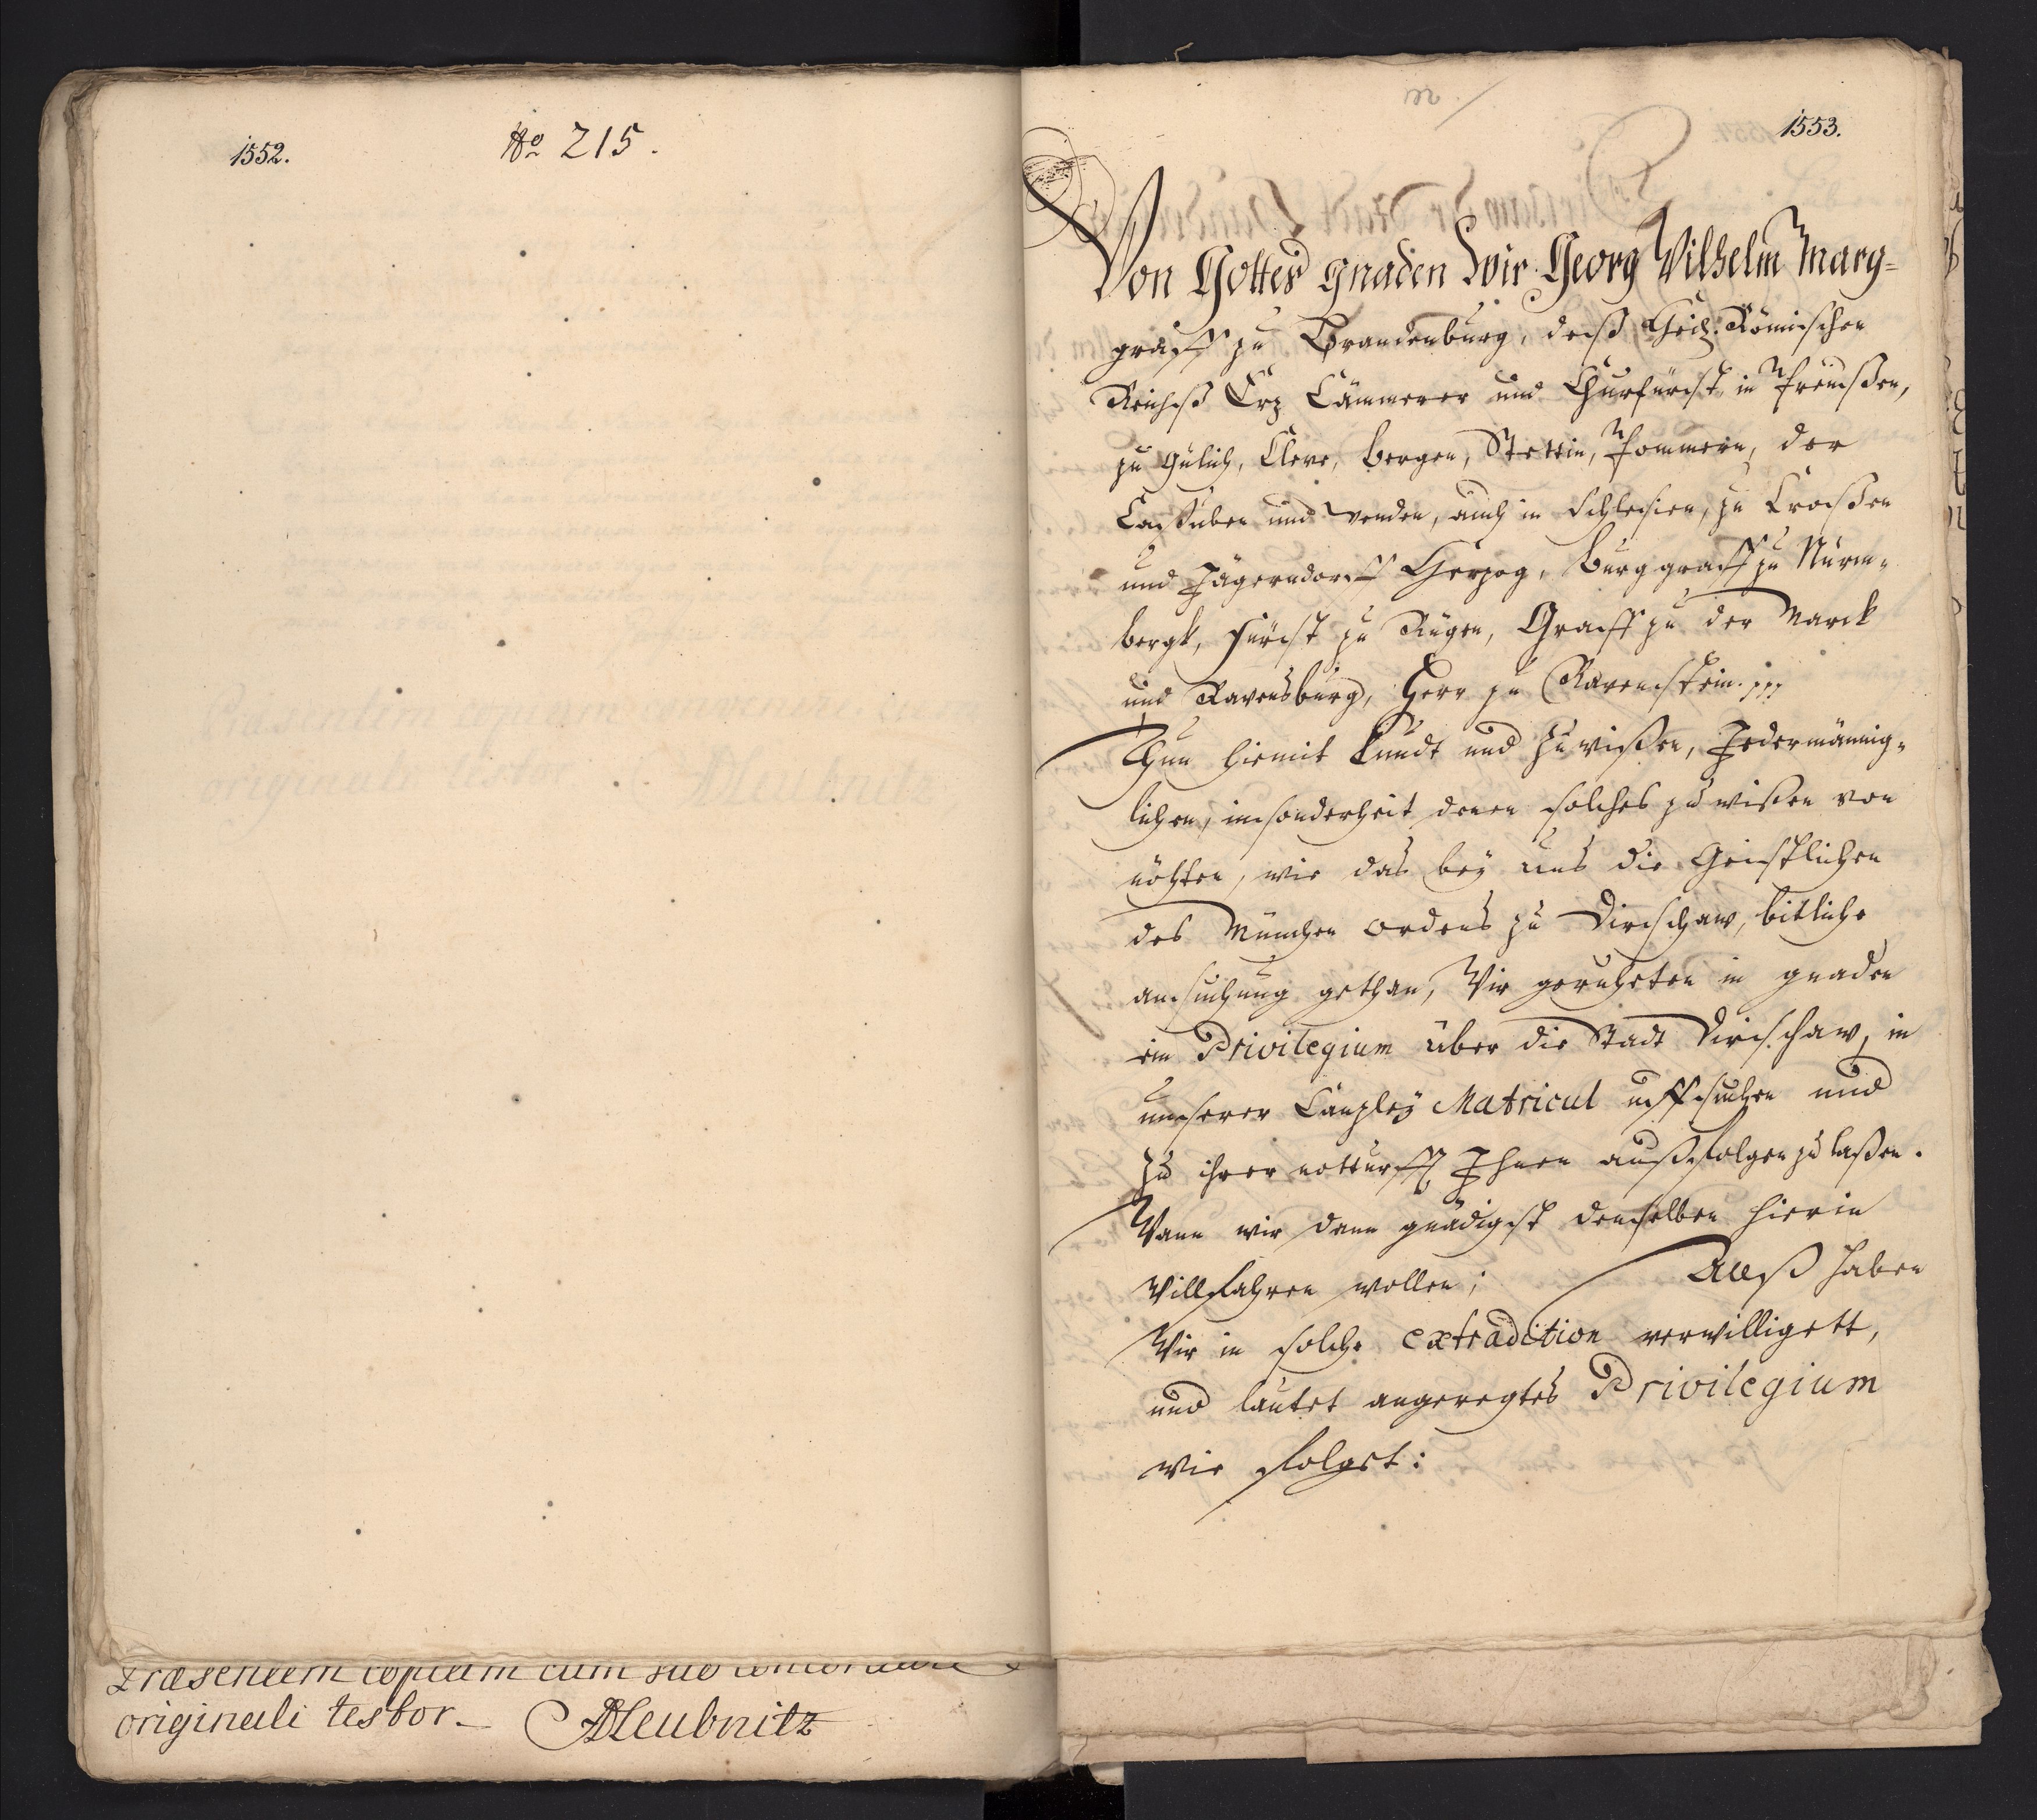 1552.
No 215.
Præsentem copiam cum suo concordare
originali testor. ABLeubnitz
1553.
Von Gottes gnaden Wir Georg Wilhelm Marg=
graff zu Brandenburg, deß Heil: Römischen
Reichß Ertz Cämmerer und Churfürst, in Preußen,
zu Gülich, Cleve, Bergen, Stettin, Pommern, der
Caßuben und Wenden, auch in Schlesien, zu Croßen
und Jägerndorff Hertzog, Burggraff zu Nürn=
bergk, Fürst zu Rügen, Graff zu der Marck
und Ravensburg, Herr zu Ravenstein.
Thun hiemit kundt und zuwißen, Jedermännig=
lichen, insonderheit denen solches zu wißen von
nöhten, wie das bey uns die Geistlichen
des München ordens zu Dirschaw, bitliche
ansuchung gethan, Wir geruheten in gnaden
ein Privilegium über die Stadt Dirschaw, in
unserer Cantzley Matricul uffsuchen und
zu ihrer notturfft Ihnen außfolgen zu laßen.
Wann wir dann gnädigst denselben hierin
Willfahren wollen; Alß haben
Wir in solche extradition verwilligett,
und lautet angeregtes Privilegium
wie folget: